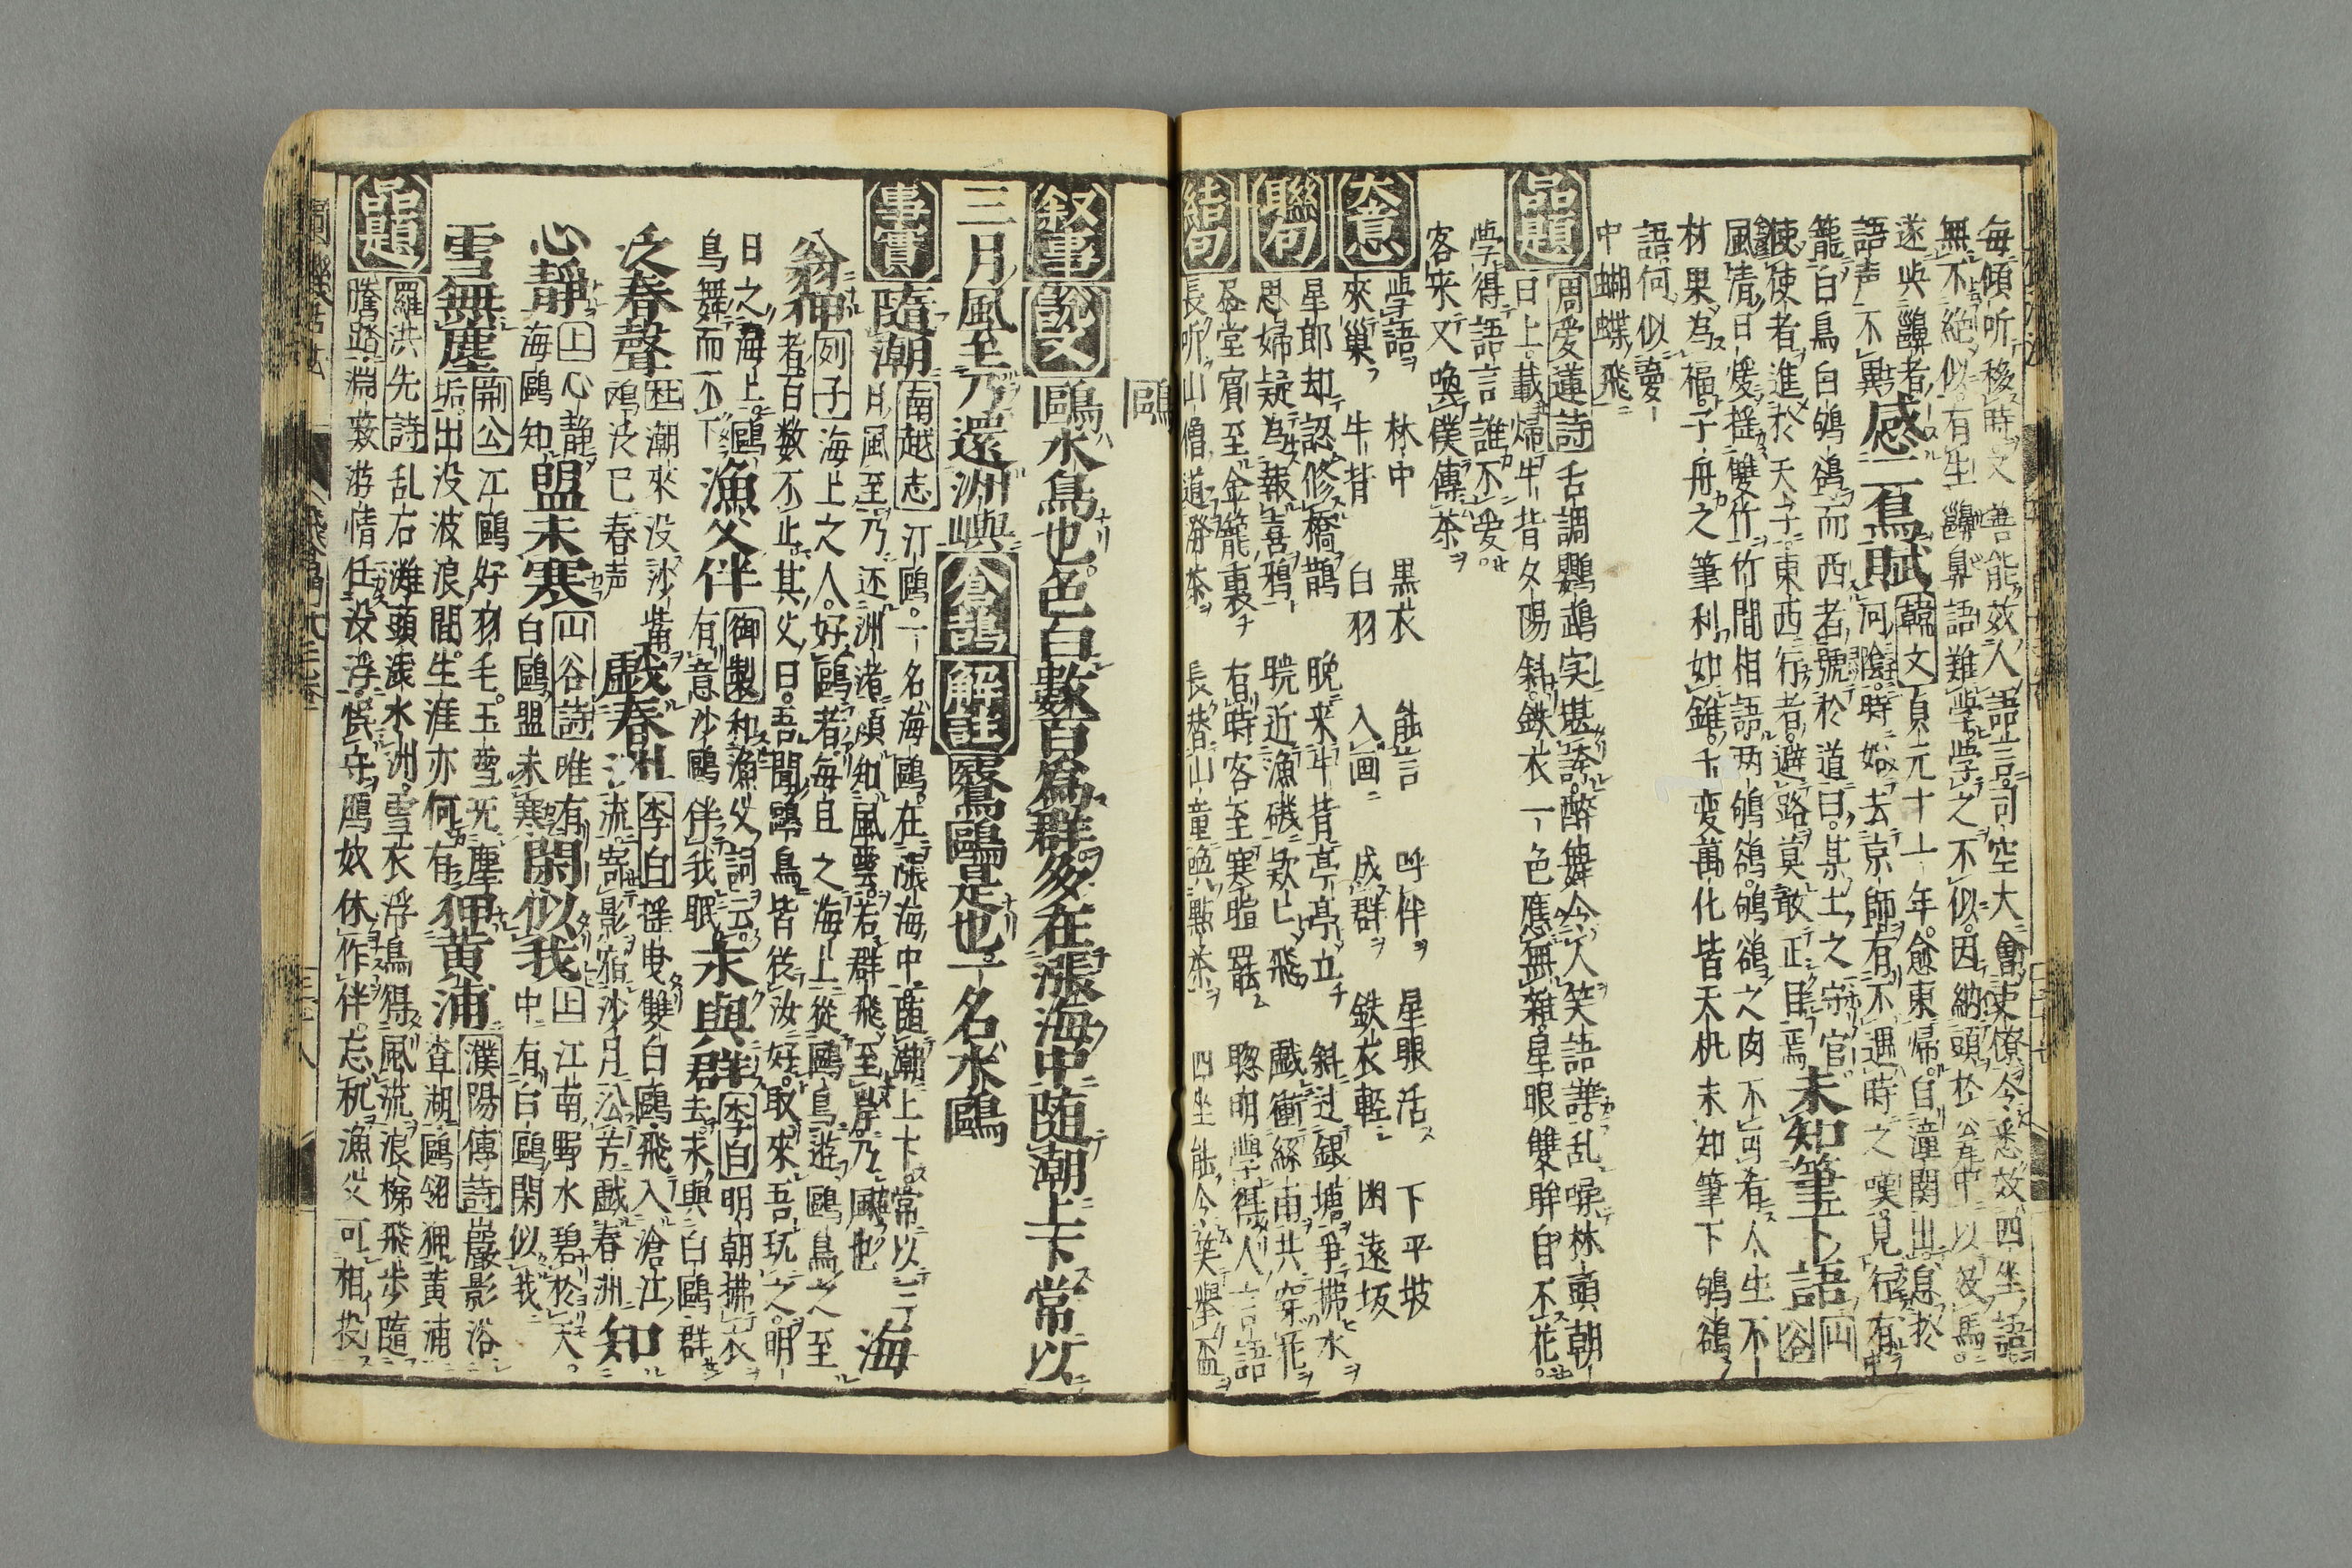 每傾听移時又善能效人語言司空大會吏僚令悉效四坐語
無不絶似有生齆鼻語難學學之不似因納頭於瓮中以效焉
遂與齆者
語声不異
感二鳥賦
韓文
貞元十一年愈東歸自潼関出息於
河陰時始去京師有不遇時之嘆見行有
籠白烏白鴝鵒而西者號於道曰某土之守官
使使者進於天子東西行者避路莫敢正目焉
未知筆下語
山谷
風清日煖揺雙竹竹間相語两鴝鵒鴝鵒之肉不可肴人生不
材果為福子舟之筆利如錐千変萬化皆天机未知筆下鴝鵒
語何似夢
中蝴蝶飛
品題
周愛蓮詩
舌調鸚鵡字堪誇醉舞令人笑語譁乱噪林頭朝
日上載歸牛背夕陽斜鉄衣一色應無雜皐眼雙眸自不花
學得語言誰不愛
客來又喚僕傳茶
大意
學語 林中 黒衣 能言 呼伴 星眼活 下平坡
來巢 牛背 白羽 入画 成群 鉄衣輕 困遠坂
聯句
星郎却認修橋鵲 晩来牛背亭亭立 斜过銀塘爭拂水
思婦疑為報喜鴉 晩近漁磯欵亡飛 戲衝絲雨共穿花
結句
昼堂賓至金籠裏 有時客至寒暄罷 聦明學得人言語
長听山僧道潑茶 長替山童喚點茶 四坐能令笑擧盃
鷗
叙事
說文
鷗水鳥也色白數百爲群多在漲海中随潮上下常以
三月風至乃還洲嶼
倉頡
解詁
鷖鷗是也一名水鷗
事實
隨潮
南越志
江鷗一名海鷗在漲海中隨潮上下常以三
月風至乃还洲渚頗知風雲若群飛至岸乃風也
海
翁狎
列子
海上之人好鷗者每旦之海上從鷗鳥遊鷗鳥之至
者百数不止其父曰吾聞鷗鳥皆從汝好取來吾玩之明
日之海上鷗
鳥舞而不下
漁父伴
御製
和漁父詞云
有意沙鷗伴我眠
求與群
李白
明朝拂衣
去求與白鷗群
泛春聲
杜
潮來没沙觜
鴎泛已春声
戲春洲
李白
揺曳雙白鷗飛入滄江
流寄影宿沙月沿芳戲春洲
知
心靜
上
心静
海鷗知
盟未寒
山谷詩
唯有
白鷗盟未寒
閑似我
上
江南野水碧於天
中有白鷗閑似我
雪無塵
荊公
江鷗好羽毛玉雪无塵
垢出没波浪間生涯亦何有
狎黄浦
濮陽傳詩
巖影浴
査湖鷗翎狎黄浦
品題
羅洪先詩
乱右灘頭浅水洲雪衣浮鳥得風流浪梯飛歩隨
騰踏淵藪游情任没浮恨守鴈奴休作伴忘机漁父可相投